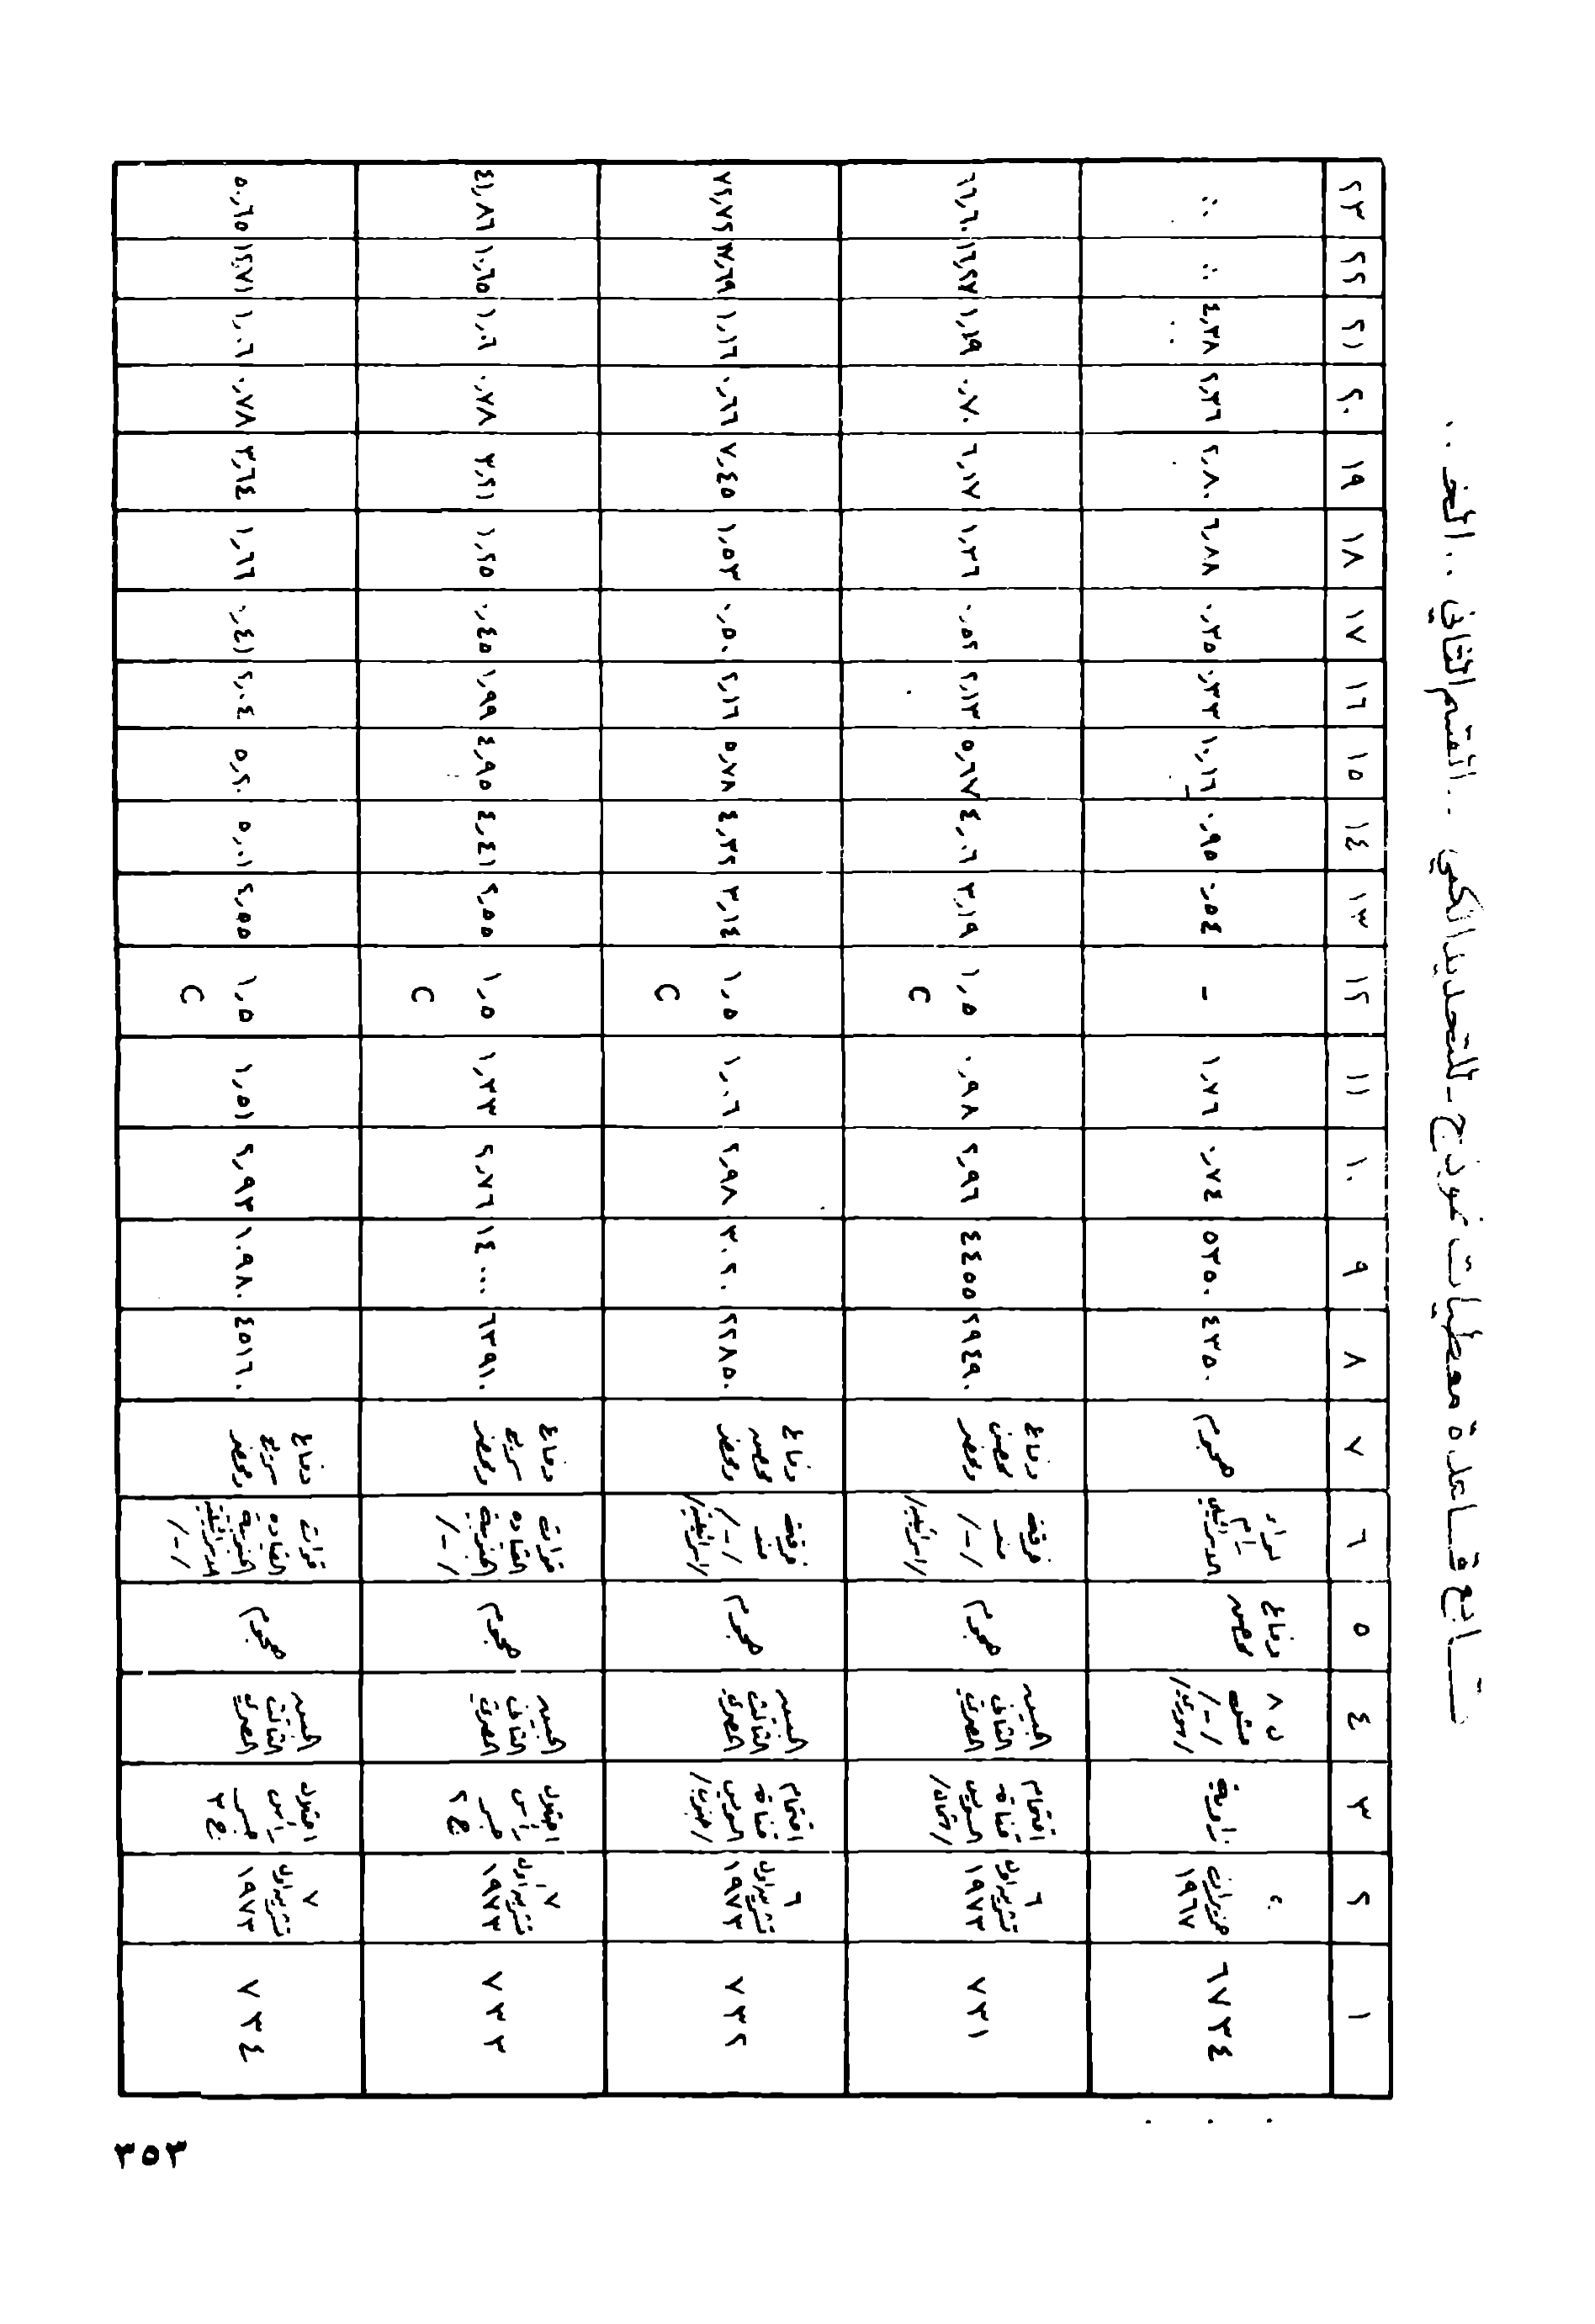 تابع قاعدة معطيات نموذج - للتحديد الكمي .. القسم الثاني .. الخ ..
١ ٢ ٣ ٤ ٥ ٦ ٧ ٨ ٩ ١٠ ١١ ١٢ ١٣ ١٤ ١٥ ١٦ ١٧ ١٨ ١٩ ٢٠ ٢١ ٢٢ ٢٣
٦٧٣٤
حزيران
١٩٦٧
زاوية
ل ٨
مش
/-/
/سوري/
دفاع
محصن
لواء
رام
الاسرائيلي
هجوم
٤٣٥٠ ٥٣٥٠ ٠,٧٤ ١,٧٦ - ٠,٥٤ ٠,٩٥ ١٠,١٦ ٠,٣٣ ٠,٣٥ ٦,٨٨ ٢,٨٠ ٢,٣٦ ٤,٣٨
٧٣١
٦
تشرين اول
١٩٧٣
اقتحام
قناة
السويس
/شمال/
الجيش
الثاني
المصري
هجوم
فرقة
مند
/-/
/اسرائيلية/
دفاع
محصن
ومحضر
٢٩٤٩٠ ٤٤٥٥ ٢,٩٦ ٠,٩٨ ١,٥ C ٣,١٩ ٤,٠٦ ٥,٦٧ ٢,١٣ ٠,٥٢ ١,٣٦ ٦,١٧ ٠,٧٠ ١,١٩ ١٦,٢٧ ٦٦,٦٠
٧٣٢
٦
تشرين اول
١٩٧٣
اقتحام
قناة
السويس
/جنوب/
الجيش
الثالث
المصري
هجوم
فرقة
مند
/-/
/اسرائيلية/
دفاع
محصن
ومحضر
٢٢٨٥٠ ٣٠٢٠ ٢,٩٨ ١,٠٦ ١,٥ C ٣,١٤ ٤,٣٢ ٥,٧٨ ٢,١٦ ٠,٥٠ ١,٥٣ ٧,٤٥ ٠,٦٦ ١,١٦
٧٣٣
٧
تشرين اول
١٩٧٣
احتلال
رأس
جسر
ج ٢
الجيش
الثاني
المصري
هجوم
قوات
القيادة
الجنوبية
/-/
دفاع
سريع
ومحضر
٦٣٩١٠ ١٤٠٠٠ ٢,٧٦ ١,٣٣ ١,٥ C ٢,٥٥ ٤,٤١ ٤,٩٥ ١,٩٩ ٠,٤٥ ١,٢٥ ٣,٢١ ٠,٧٨ ١,٠٦ ١٠,٦٥ ٤١,٨٦
٧٣٤
٧
تشرين اول
١٩٧٣
احتلال
رأس
جسر
ج ٣
الجيش
الثالث
المصري
هجوم
قوات
القيادة
الجنوبية
الاسرائيلية
/-/
دفاع
سريع
ومحضر
٤٥١٦٠ ١٠٩٨٠ ٢,٩٣ ١,٥١ ١,٥ C ٢,٥٥ ٥,٠١ ٥,٢٠ ٢,٠٤ ٠,٤١ ١,٦٦ ٣,٦٤ ٠,٧٨ ١,٠٦ ١٢,٧١ ٥٠,٦٥
٣٥٣